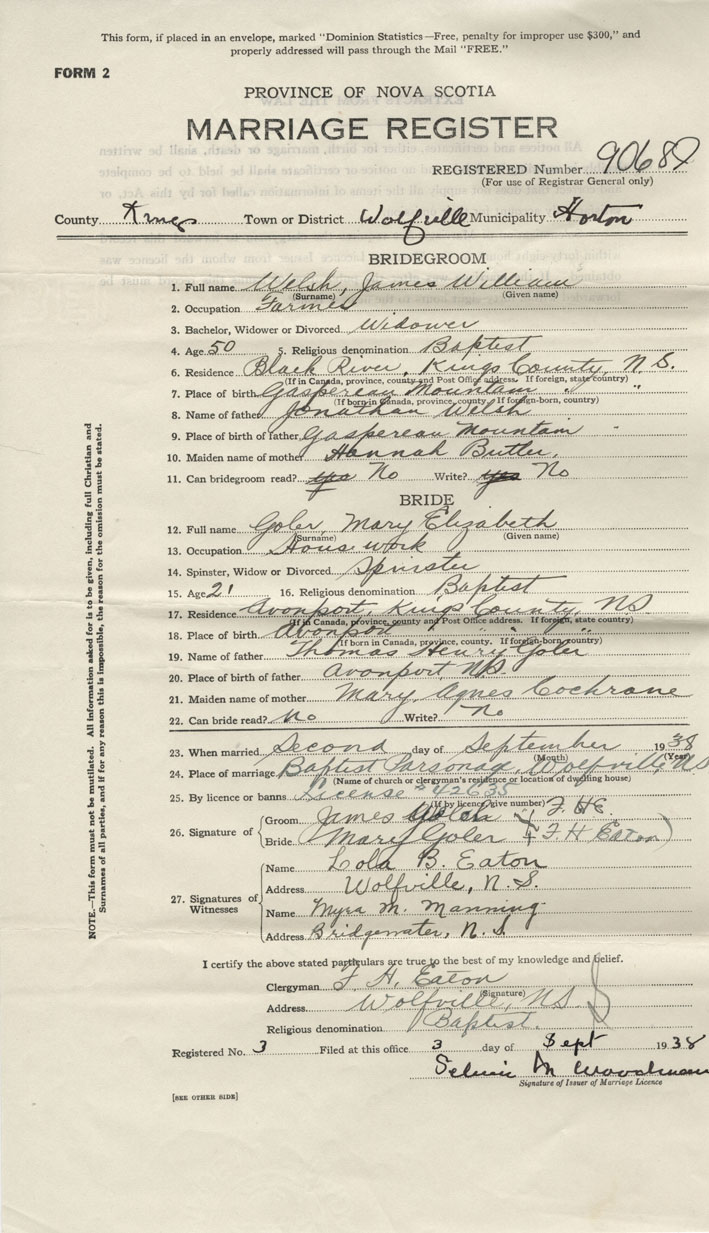 This form, if placed in an envelope, marked "Dominion Statistics—Free, penalty for improper use $300," and
properly addressed will pass through the Mail "FREE."
FORM 2
PROVINCE OF NOVA SCOTIA
MARRIAGE REGISTER
REGISTERED Number 90682
(For use of Registrar General only)
County Kings Town or District Wolfville Municipality Horton
BRIDEGROOM
1. Full name Welsh, James William
(Surname) (Given name)
2. Occupation Farmer
3. Bachelor, Widower or Divorced Widower
4. Age 50 5. Religious denomination Baptist
6. Residence Black River, Kings County, N.S.
(If in Canada, province, county and Post Office address. If foreign, state country)
7. Place of birth Gaspereau Mountain " "
(If born in Canada, province, county. If foreign-born, country)
8. Name of father Jonathan Welsh
9. Place of birth of father Gaspereau Mountain "
10. Maiden name of mother Hannah Butler.
11. Can bridegroom read? yes No Write? yes No
BRIDE
12. Full name Goler, Mary Elizabeth
(Surname) (Given name)
13. Occupation House work
14. Spinster, Widow or Divorced Spinster
15. Age 21 16. Religious denomination Baptist
17. Residence Avonport, Kings County, NS
(If in Canada, province, county and Post Office address. If foreign, state country)
18. Place of birth Avonport " " "
(If born in Canada, province, county. If foreign-born, country)
19. Name of father Thomas Henry Goler
20. Place of birth of father Avonport NS.
21. Maiden name of mother Mary Agnes Cochrane
22. Can bride read? No Write? No
23. When married Second day of September 1938
(Month) (Year)
24. Place of marriage Baptist Parsonage, Wolfville, NS
(Name of church or clergyman's residence or location of dwelling house)
25. By licence or banns License # 42635
(If by licence, give number)
26. Signature of Groom James Welsh F. H E.
Bride Mary Goler (F H Eaton)
27. Signatures of Witnesses
Name Lola B. Eaton
Address Wolfville, N.S.
Name Myra M. Manning
Address Bridgewater, N.S.
I certify the above stated particulars are true to the best of my knowledge and belief.
Clergyman F. H. Eaton
(Signature)
Address Wolfville, NS
Religious denomination Baptist.
Registered No. 3 Filed at this office 3 day of Sept 1938
M Woodman
Signature of Issuer of Marriage Licence
[SEE OTHER SIDE]
NOTE.—This form must not be mutilated. All information asked for is to be given, including full Christian and
Surnames of all parties, and if for any reason this is impossible, the reason for the omission must be stated.